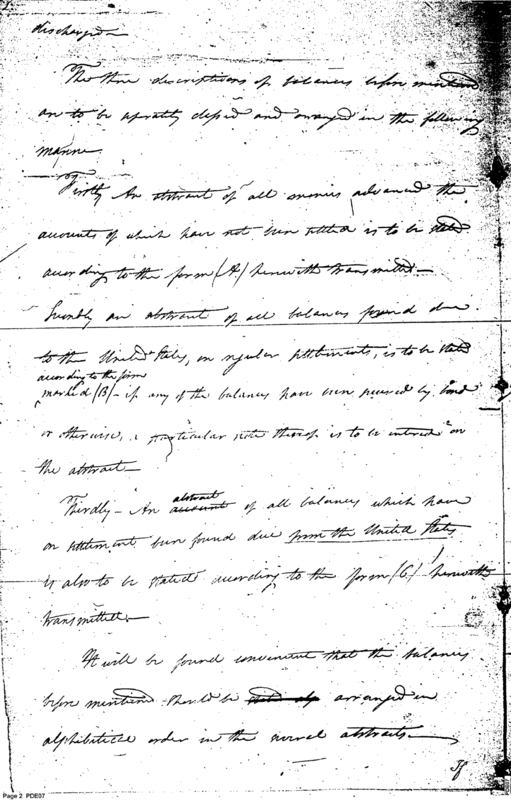 discharged—
The three descriptions of balances before mentioned
are to be separately classed and arranged in the following
manner
Firstly An abstract of all monies advanced the
accounts of which have not been settled is to be stated
according to the form (A) herewith transmitted—
Secondly an abstract of all balances found due
to the United States, on regular settlements, is to be stated
according to the form
marked (B) – if any of the balances have been secured by bond
or otherwise, a particular note thereof is to be entered on
the abstract—
Thirdly – An abstract account of all balances which have
on settlement been found due from the United States
is also to be stated according to the form (C) herewith
transmitted.—
It will be found convenient that the balances
before mentioned should be arranged in
alphabetical order in the several abstracts—
If
Page 2 PDE07